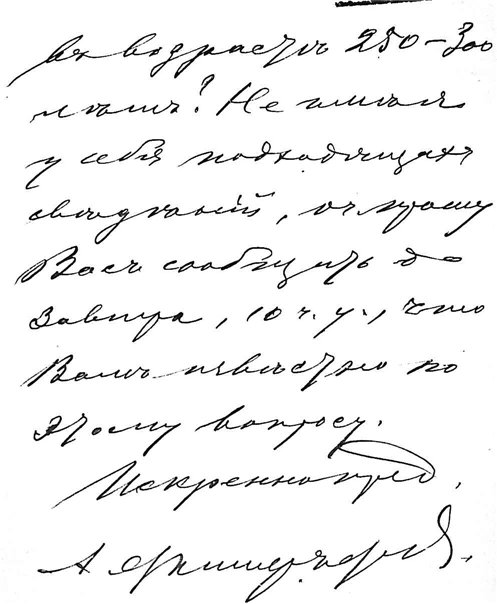 въ возрастѣ 250–300
лѣтъ? Не имѣя
у себя подходящихъ
свѣдѣній, прошу
Васъ сообщить до
завтра, 10 ч. у., что
Вамъ извѣстно по
этому вопросу.
Искренно пред.
А